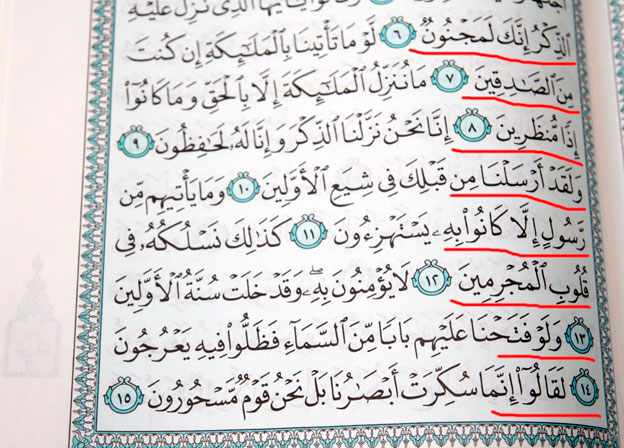 وَقَالُوا۟ يَٰٓأَيُّهَا ٱلَّذِى نُزِّلَ عَلَيْهِ
ٱلذِّكْرُ إِنَّكَ لَمَجْنُونٌ ٦ لَّوْ مَا تَأْتِينَا بِٱلْمَلَٰٓئِكَةِ إِن كُنتَ
مِنَ ٱلصَّٰدِقِينَ ٧ مَا نُنَزِّلُ ٱلْمَلَٰٓئِكَةَ إِلَّا بِٱلْحَقِّ وَمَا كَانُوٓا۟
إِذًا مُّنظَرِينَ ٨ إِنَّا نَحْنُ نَزَّلْنَا ٱلذِّكْرَ وَإِنَّا لَهُۥ لَحَٰفِظُونَ ٩
وَلَقَدْ أَرْسَلْنَا مِن قَبْلِكَ فِى شِيَعِ ٱلْأَوَّلِينَ ١٠ وَمَا يَأْتِيهِم مِّن
رَّسُولٍ إِلَّا كَانُوا۟ بِهِۦ يَسْتَهْزِءُونَ ١١ كَذَٰلِكَ نَسْلُكُهُۥ فِى
قُلُوبِ ٱلْمُجْرِمِينَ ١٢ لَا يُؤْمِنُونَ بِهِۦ ۖ وَقَدْ خَلَتْ سُنَّةُ ٱلْأَوَّلِينَ
١٣ وَلَوْ فَتَحْنَا عَلَيْهِم بَابًا مِّنَ ٱلسَّمَآءِ فَظَلُّوا۟ فِيهِ يَعْرُجُونَ
١٤ لَقَالُوٓا۟ إِنَّمَا سُكِّرَتْ أَبْصَٰرُنَا بَلْ نَحْنُ قَوْمٌ مَّسْحُورُونَ ١٥